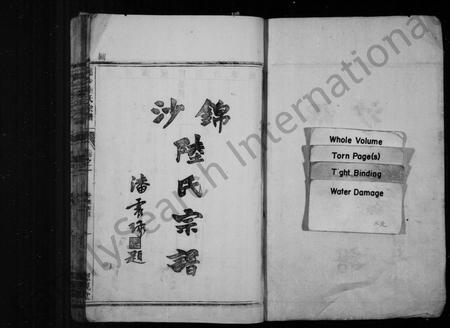 錦沙
陸氏宗譜
潘雲
題
Whole Volume
Torn Page(s)
Tight Binding
Water Damage
FamilySearch International